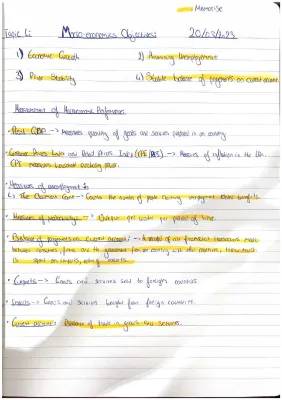 Memorise
Topic 1: Macro-economics Objectives: 20/03/2023
1) Economic Growth 2) Minimising Unemployment
3) Price Stability 4) Stable balance of payments on current account
Measurement of Macroeconomic Performance:
Real GDP --> Measures quantity of goods and services produced in an economy.
Consumer Prices Index and Retail Prices Index (CPI/RPI) --> Measures of inflation in the UK.
CPI measures
Measures of unemployment
1. The Claimant Count --> Counts the number of people claiming unemployment benefits.
Measures of Productivity --> Output per worker per period of time.
Balance of payments on current account: A record of all financial transactions made
between consumers, firms and the government
spent on imports, exports.
Exports --> Goods and services sold to foreign countries
Imports --> Goods and services bought from foreign countries.
Current account: Balance of trade in goods and services.